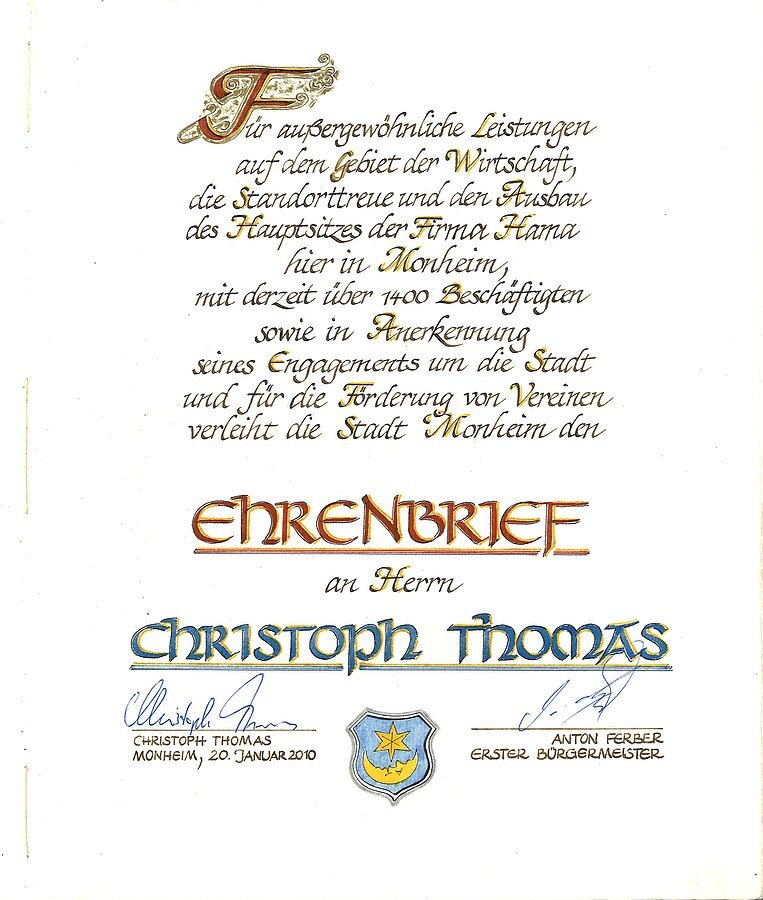 Für außergewöhnliche Leistungen
auf dem Gebiet der Wirtschaft,
die Standorttreue und den Ausbau
des Hauptsitzes der Firma Hama
hier in Monheim,
mit derzeit über 1400 Beschäftigten
sowie in Anerkennung
seines Engagements um die Stadt
und für die Förderung von Vereinen
verleiht die Stadt Monheim den
EHRENBRIEF
an Herrn
CHRISTOPH THOMAS
Christoph Thomas
CHRISTOPH THOMAS
MONHEIM, 20. JANUAR 2010
ANTON FERBER
ERSTER BÜRGERMEISTER